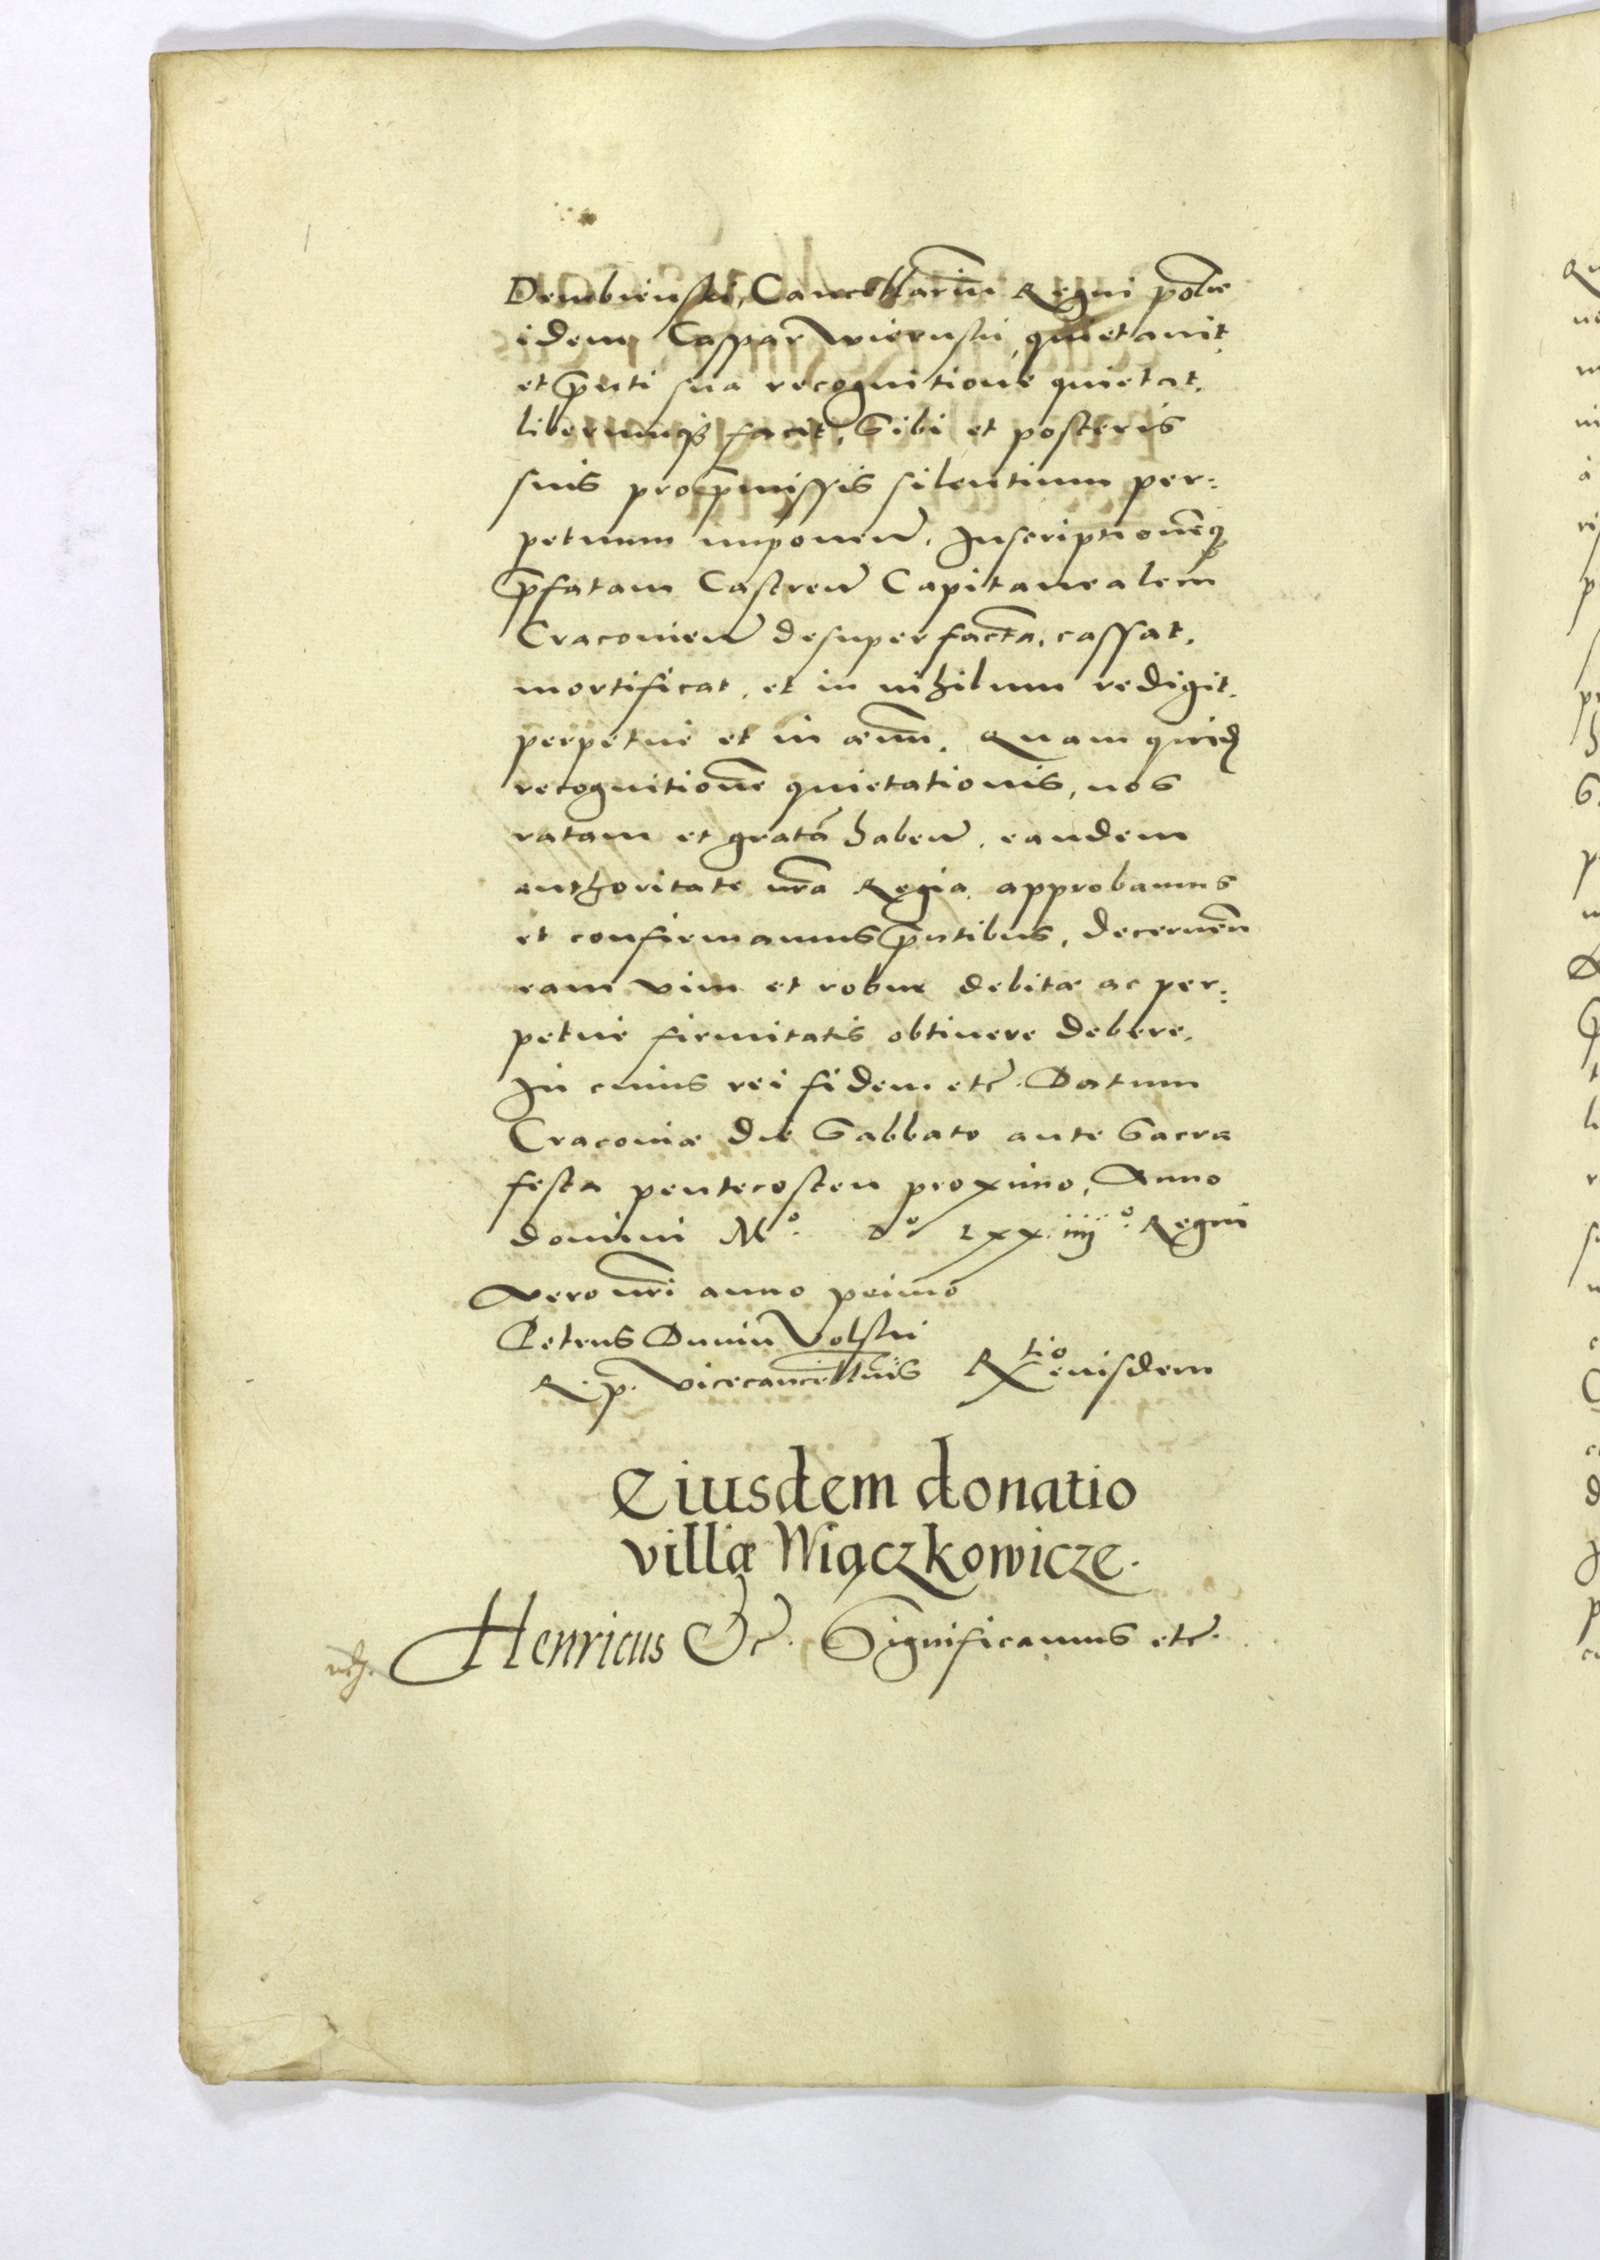 Dembienski, Cancellariũ Regni Polõe
idem Caspar Wieruski, quietavit,
et p̃nti sua recognitione quietat,
liberumq₃ facit, Sibi et posteris
suis pro p̃missis silentium per:
petuum imponeñ. Inscriptionẽq₃
p̃fatam Castreñ Capitanealem
Cracovieñ desuper factã, cassat,
mortificat, et in nihilum redigit,
perpetue et in ævũm. Quam quid̃
recognitionẽ quietationis, nos
ratam et gratã habeñ, eandem
authoritate nr̃a Regia, approbamus
et confirmamus p̃ntibus, decerneñ
eam vim et robur debitæ ac per:
petue firmitatis obtinere debere.
In cuius rei fidem etc. Datum
Cracoviæ die Sabbato ante Sacra
festa pentecosten proximo, Anno
domini M.º Dº Lxx.iiijº. Regni
vero nr̃i anno primo
Petrus Dunin Volski
R. p. Vicecancellariũs Rtio eiusdem
Eiusdem donatio
villæ Wiączkowicze.
Henricus Etc. Significamus etc.